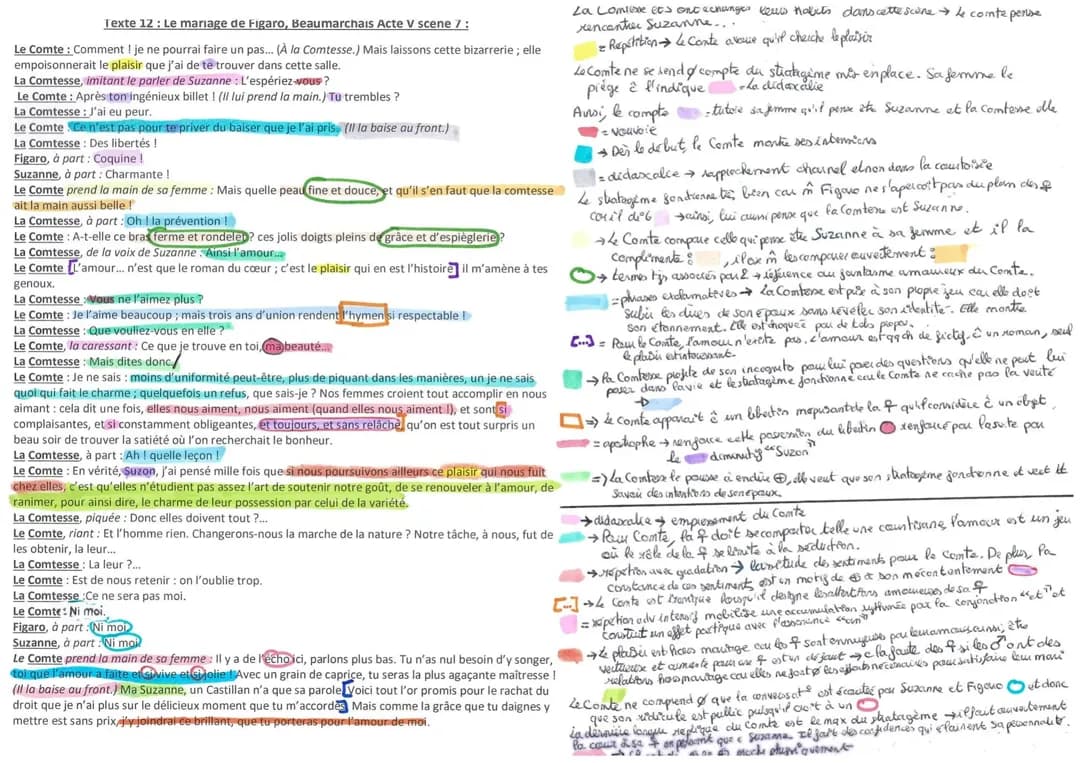 Texte 12 : Le mariage de Figaro, Beaumarchais Acte V scene 7 :
Le Comte : Comment ! je ne pourrai faire un pas... (À la Comtesse.) Mais laissons cette bizarrerie ; elle
empoisonnerait le plaisir que j'ai de te trouver dans cette salle.
La Comtesse, imitant le parler de Suzanne : L'espériez-vous ?
Le Comte : Après ton ingénieux billet ! (Il lui prend la main.) Tu trembles ?
La Comtesse : J'ai eu peur.
Le Comte : Ce n'est pas pour te priver du baiser que je l'ai pris. (Il la baise au front.)
La Comtesse : Des libertés !
Figaro, à part : Coquine !
Suzanne, à part : Charmante !
Le Comte prend la main de sa femme : Mais quelle peau fine et douce, et qu'il s'en faut que la comtesse
ait la main aussi belle !
La Comtesse, à part : Oh ! la prévention !
Le Comte : A-t-elle ce bras ferme et rondelet ? ces jolis doigts pleins de grâce et d'espièglerie ?
La Comtesse, de la voix de Suzanne : Ainsi l'amour...
Le Comte : L'amour... n'est que le roman du cœur ; c'est le plaisir qui en est l'histoire ; il m'amène à tes
genoux.
La Comtesse : Vous ne l'aimez plus ?
Le Comte : Je l'aime beaucoup ; mais trois ans d'union rendent l'hymen si respectable !
La Comtesse : Que vouliez-vous en elle ?
Le Comte, la caressant : Ce que je trouve en toi, ma beauté...
La Comtesse : Mais dites donc.
Le Comte : Je ne sais : moins d'uniformité peut-être, plus de piquant dans les manières, un je ne sais
quoi qui fait le charme ; quelquefois un refus, que sais-je ? Nos femmes croient tout accomplir en nous
aimant : cela dit une fois, elles nous aiment, nous aiment (quand elles nous aiment !), et sont si
complaisantes, et si constamment obligeantes, et toujours, et sans relâche, qu'on est tout surpris un
beau soir de trouver la satiété où l'on recherchait le bonheur.
La Comtesse, à part : Ah ! quelle leçon !
Le Comte : En vérité, Suzon, j'ai pensé mille fois que si nous poursuivons ailleurs ce plaisir qui nous fuit
chez elles, c'est qu'elles n'étudient pas assez l'art de soutenir notre goût, de se renouveler à l'amour, de
ranimer, pour ainsi dire, le charme de leur possession par celui de la variété.
La Comtesse, piquée : Donc elles doivent tout ?...
Le Comte, riant : Et l'homme rien. Changerons-nous la marche de la nature ? Notre tâche, à nous, fut de
les obtenir, la leur...
La Comtesse : La leur ?...
Le Comte : Est de nous retenir : on l'oublie trop.
La Comtesse : Ce ne sera pas moi.
Le Comte : Ni moi.
Figaro, à part : Ni moi.
Suzanne, à part : Ni moi.
Le Comte prend la main de sa femme : Il y a de l'écho ici, parlons plus bas. Tu n'as nul besoin d'y songer,
toi que l'amour a faite et si vive et si jolie ! Avec un grain de caprice, tu seras la plus agaçante maîtresse !
(Il la baise au front.) Ma Suzanne, un Castillan n'a que sa parole. Voici tout l'or promis pour le rachat du
droit que je n'ai plus sur le délicieux moment que tu m'accordes. Mais comme la grâce que tu daignes y
mettre est sans prix, j'y joindrai ce brillant, que tu porteras pour l'amour de moi.
La Comtesse et S ont échangés leurs habits dans cette scène → le comte pense
rencontrer Suzanne...
= Repétition → Le Conte avoue qu'il cherche le plaisir
Le Comte ne se rend Ø compte du stratagème mis en place. Sa femme le
piège c l'indique = La didascalie
Aussi, le compte = tutoie sa femme qu'il pense être Suzanne et la Comtesse elle
= vouvoie
→ Dès le début, le Comte montre ses intentions
= didascalie → rapprochement charnel et non dans la courtoisie
Le stratagème fonctionne très bien car m Figaro ne s'aperçoit pas du plan des ♀
→ ainsi, lui aussi pense que la Comtesse est Suzanne.
→ Le Comte compare celle qu'il pense être Suzanne à sa femme et il la
complimente : , il ose m les comparer ouvertement :
→ termes tjs associés par 2 → référence au fantasme amoureux du Comte.
= phrases exclamatives → La Comtesse est prise à son propre jeu car elle doit
subir les dires de son époux sans révéler son identité. Elle montre
son étonnement. Elle est choquée par de tels propos.
[...] = Pour le Comte, l'amour n'existe pas. L'amour est qqch de fictif, c un roman, seul
le plaisir est intéressant.
→ La Comtesse profite de son incognito pour lui poser des questions qu'elle ne peut lui
poser dans la vie et le stratagème fonctionne car le Comte ne cache pas la vérité
→ Le Comte apparait c un libertin méprisant de la ♀ qu'il considère c un objet
= apostrophe → renforce cette possession du libertin renforcé par la suite par
le diminutif "Suzon"
=> La Comtesse le pousse à en dire ⊕, elle veut que son stratagème fonctionne et veut tt
savoir des intentions de son époux.
→ didascalie → empressement du Comte
→ Pour Comte, la ♀ doit se comporter telle une courtisane, l'amour est un jeu
où le rôle de la ♀ se limite à la séduction.
→ répétition avec gradation → lassitude des sentiments pour le Comte. De plus, la
constance de ces sentiments est un motif de ⊕ à son mécontentement
[...] → Le Comte est ironique lorsqu'il désigne les attentions amoureuses de sa ♀
= répétition adv intensif mobilise une accumulation rythmée par la conjonction "et" et
construit un effet poétique avec l'assonance
Le Comte ne comprend Ø que la conversat° est écoutée par Suzanne et Figaro et donc
que son ridicule est public puisqu'il croit à un
La dernière longue réplique du Comte est le max du stratagème → il fait ouvertement
la cour à sa ♀ en pensant que c Suzanne. Il fait des confidences qui éclairent sa personnalité.